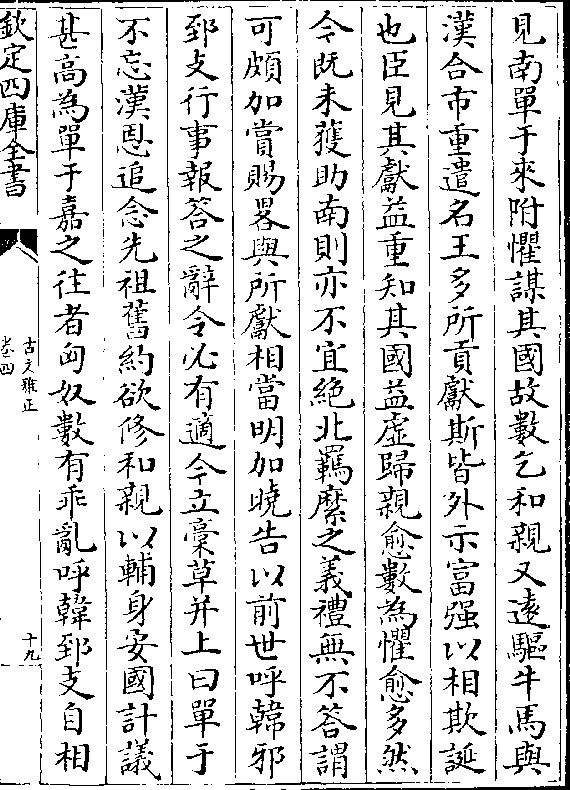 見南單于來附懼謀其國故數乞和親又逺驅牛馬與
漢合市重遣名王多所貢獻斯皆外示富强以相欺誕
也臣見其獻益重知其國益虚歸親愈數為懼愈多然
今既未獲助南則亦不宜絶北羈縻之義禮無不答謂
可頗加賞賜畧與所獻相當明加曉告以前世呼韓邪
郅支行事報答之辭令必有適今立稾草并上曰單于
不忘漢恩追念先祖舊約欲修和親以輔身安國計議
甚髙為單于嘉之往者匈奴數有乖亂呼韓郅支自相
欽定四庫全書
古文雅正
卷四
十九